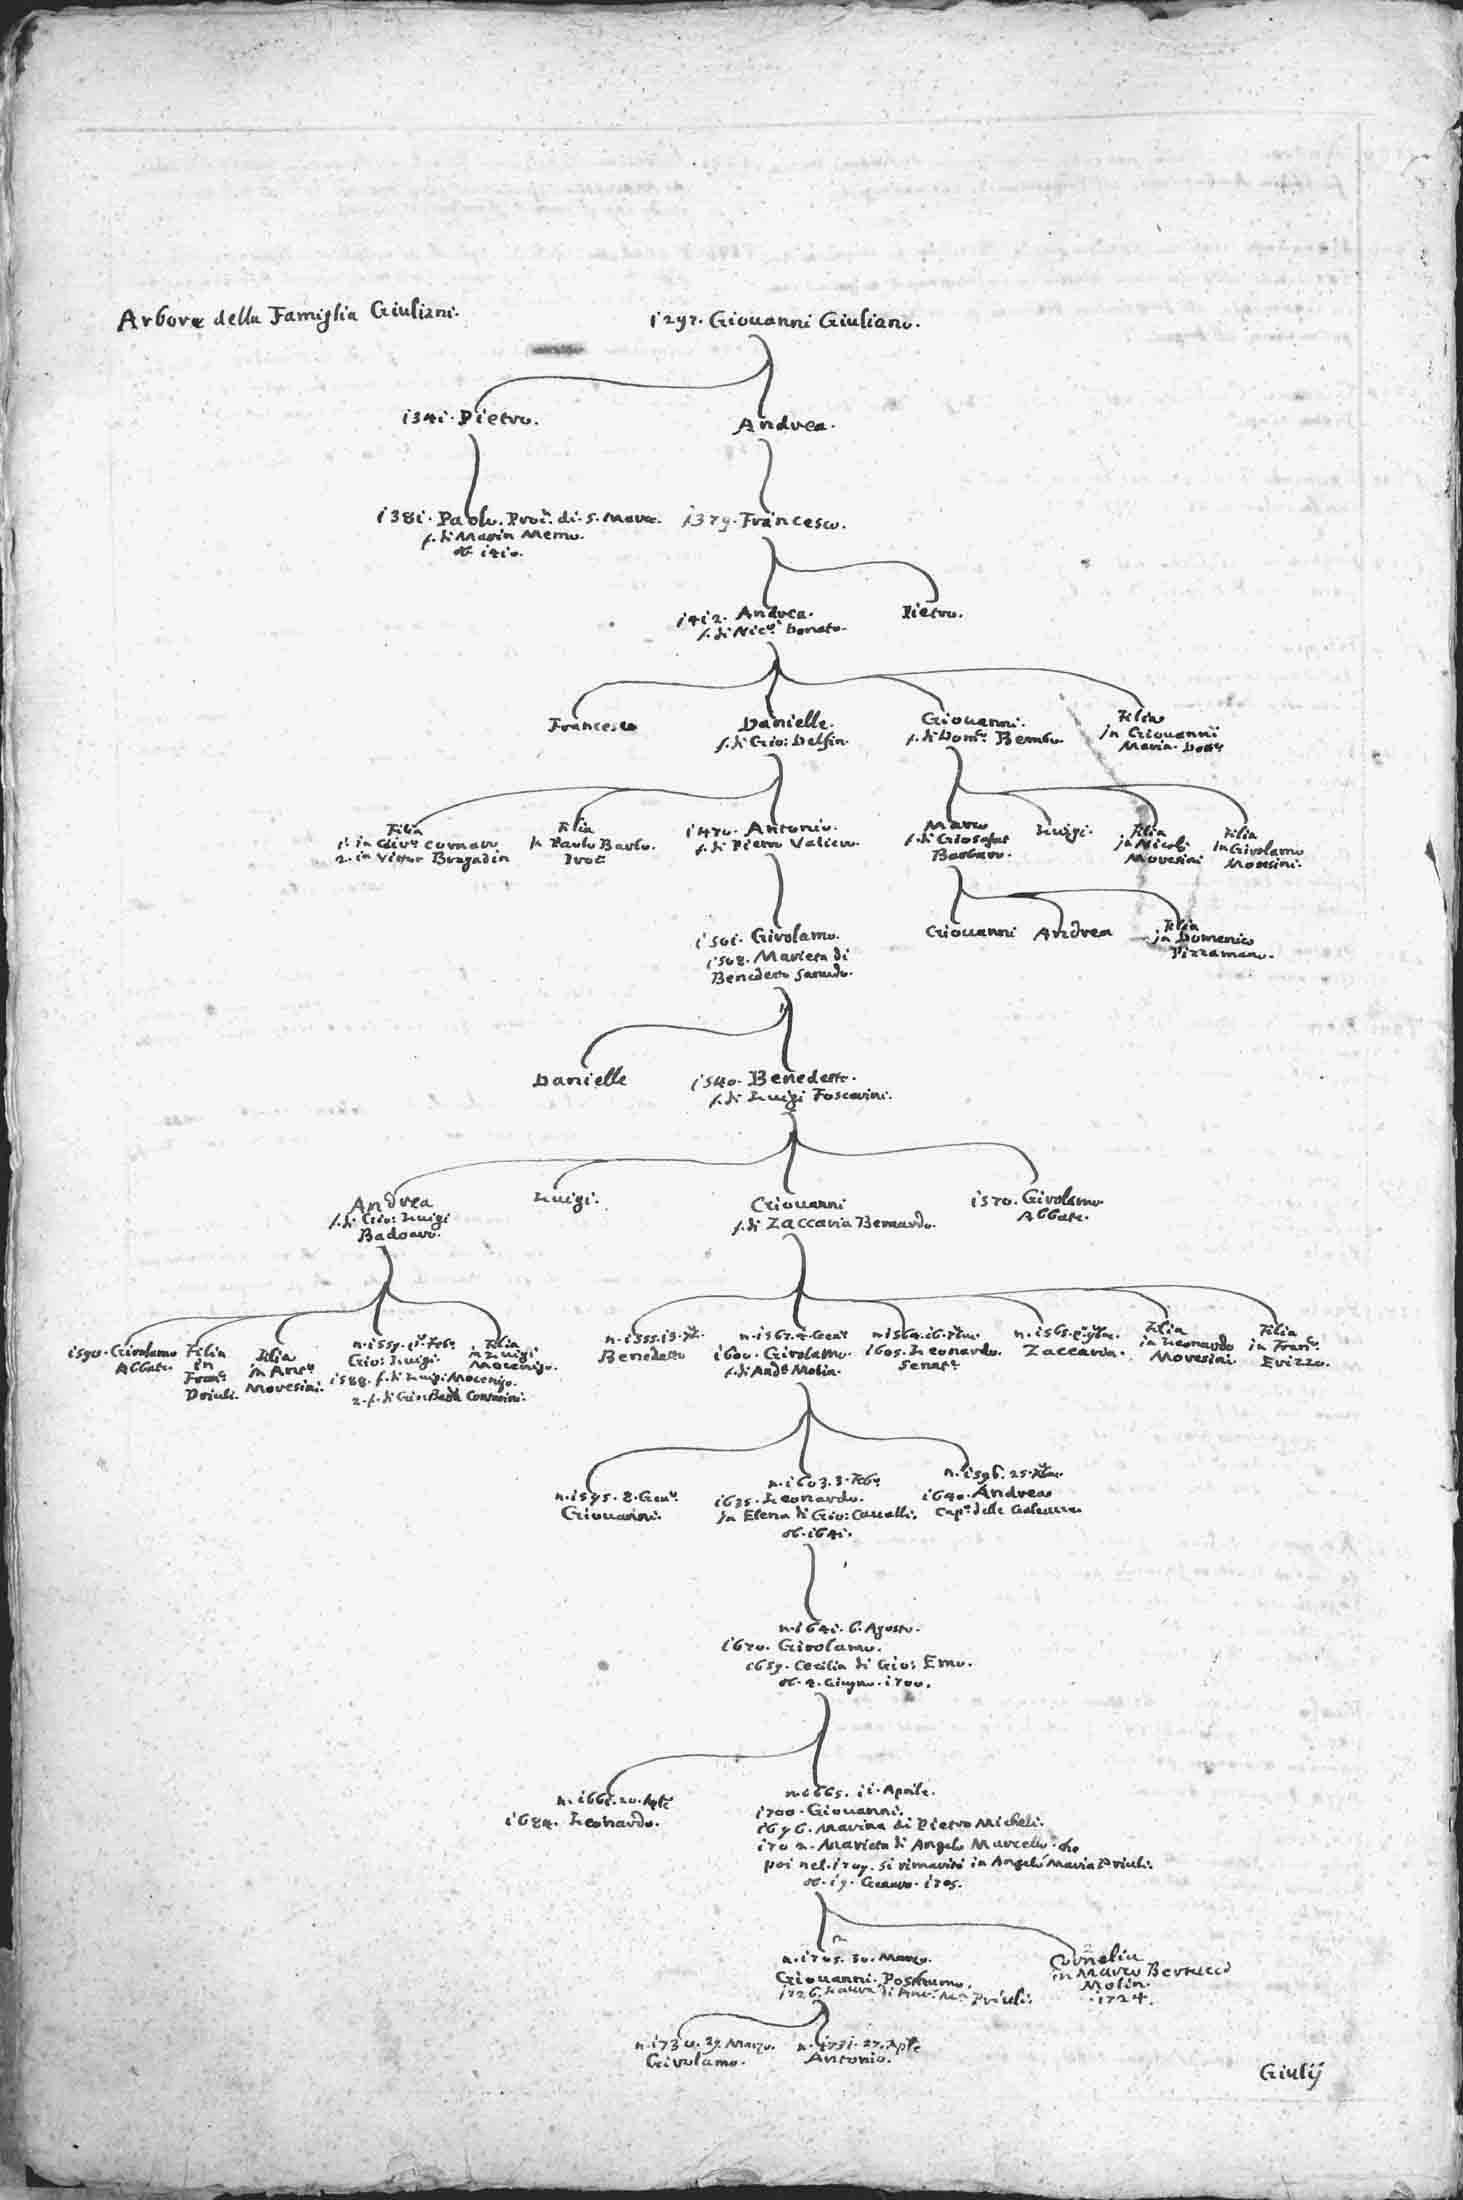 Arbore della Famiglia Giuliani.
1297. Giovanni Giuliano.
1341. Pietro.
Andrea.
1381. Paolo. Procr. di S. Marco.
f. di Marin Memo.
ob. 1410.
1379. Francesco.
1412. Andrea.
f. di Nico. Donato.
Pietro.
Francesco
Danielle.
f. di Gio: Delfin.
Giovanni.
f. di Domo. Bembo.
Filia
in Giovanni
Maria
Filia
1. in Cornaro
2. in Vittor Bragadin
Filia
in Paolo Barbo.
Proc.
1470. Antonio.
f. di Pietro Valier.
Marco
f. di Giosafat
Barbaro.
Luigi.
Filia
in Nicolò
Moresini
Filia
in Girolamo
Moresini.
1501. Girolamo.
1508. Marieta di
Benedetto Sanudo.
Giovanni
Andrea
Filia
in Domenico
Pizzamano.
Danielle
1540. Benedetto.
f. di Luigi Foscarini.
Andrea
f. di Gio: Luigi
Badoaro.
Luigi.
Giovanni
f. di Zaccaria Bernardo.
1570. Girolamo
Abbate.
1590. Girolamo
Abbate.
Filia
in
Franco.
Priuli.
Filia
in Anto.
Moresini.
n. 1559. Febo.
Gio: Luigi.
1588. f. di Luigi Mocenigo.
2. f. di Gio: Batta Contarini.
Filia
in Luigi
Mocenigo.
n. 1555. 13.
Benedetto
n. 1562. 4. Genro.
1600. Girolamo.
f. di Anda. Molin.
n. 1564. 16.
1605. Leonardo.
Senatr.
n. 1565.
Zaccaria.
Filia
in Leonardo
Moresini.
Filia
in Franco.
Erizzo.
n. 1595. 8. Genro.
Giovanni.
n. 1603. 3. Febo.
1635. Leonardo.
in Elena di Gio: Cavalli.
ob. 1641.
n. 1596. 25.
1640. Andrea
Capo. delle Galeazze
n. 1641. 6. Agosto.
1670. Girolamo.
1659. Cecilia di Gio: Emo.
ob. 2. Giugno. 1700.
n. 1661. 20. Aple
1684. Leonardo.
n. 1665. 11. Aprile.
1700. Giovanni.
1696. Marina di Pietro Micheli.
1702. Marieta di Angelo Marcello. che
poi nel. 1709. si rimaritò in Angelo Maria Priuli.
ob. 19. Genaro. 1705.
n. 1705. 30. Marzo.
Giovanni. Posthumo.
1726. Laura di Ma. Priuli.
Cornelia
in Marco Bertucci
Molin.
1724.
n. 1730. 29. Marzo.
Girolamo.
n. 1731. 27. Aple
Antonio.
Giulij